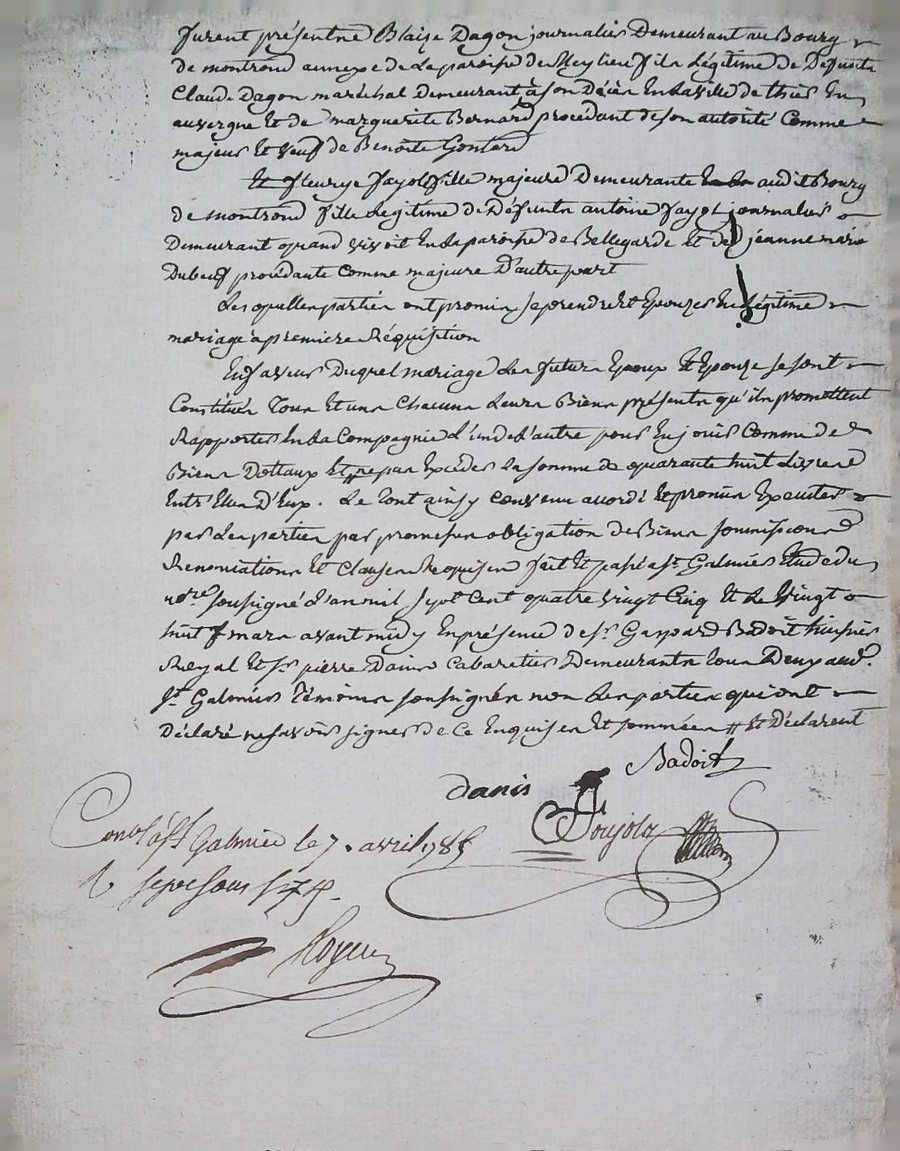 furent présents Blaise Dagon journalier Demeurant au Bourg
de montrond annexe de La paroisse de Meylieu fils Légitime de Défunts
Claude Dagon maréchal demeurant à son Décès En La ville de thiers En
auvergne Et de marguerite Bernard procédant de son autorité Comme
majeur Et veuf de Benoite Gontard
Et fleurye fayol fille majeure Demeurante audit Bourg
de montrond fille Légitime de Défunts antoine fayol journalier
Demeurant quand vivoit En La paroisse de Bellegarde Et de jeanne marie
Dubeuf procédante Comme majeure D'autre part
Lesquelles parties ont promis se prendre Et Epouzer En Légitime
mariage a premiere Réquisition
En faveur Duquel mariage Les futurs Epoux Et Epouze se sont
Constitués Tous Et uns Chacuns Leurs Biens présents qu'ils promettent
Rapporter En La Compagnie L'un de L'autre pour En jouir Comme de
Biens Dottaux Et ne pas Excéder La somme de quarante huit Livres
Entr'Elles D'Eux. Le Tout ainsy Convenu accordé Et promis Executer
par Les parties par promesses obligation de Biens soumissions
Renonciations Et Clauses Requises fait Et passé a St Galmier Etude du
nore soussigné L'an mil sept Cent quatre vingt Cinq Et Le vingt
huit mars avant midy En présence de sr. Gaspard Badoit huissier
Royal Et sr. pierre Danis Cabaretier Demeurants tous Deux aud.
St. Galmier Témoins soussignés non Les parties qui ont
Déclaré ne savoir signer de Ce Enquises Et sommées Et Déclarent
Badoit
danis
Conlé a St Galmier le 7. avril 1785
R sept sous